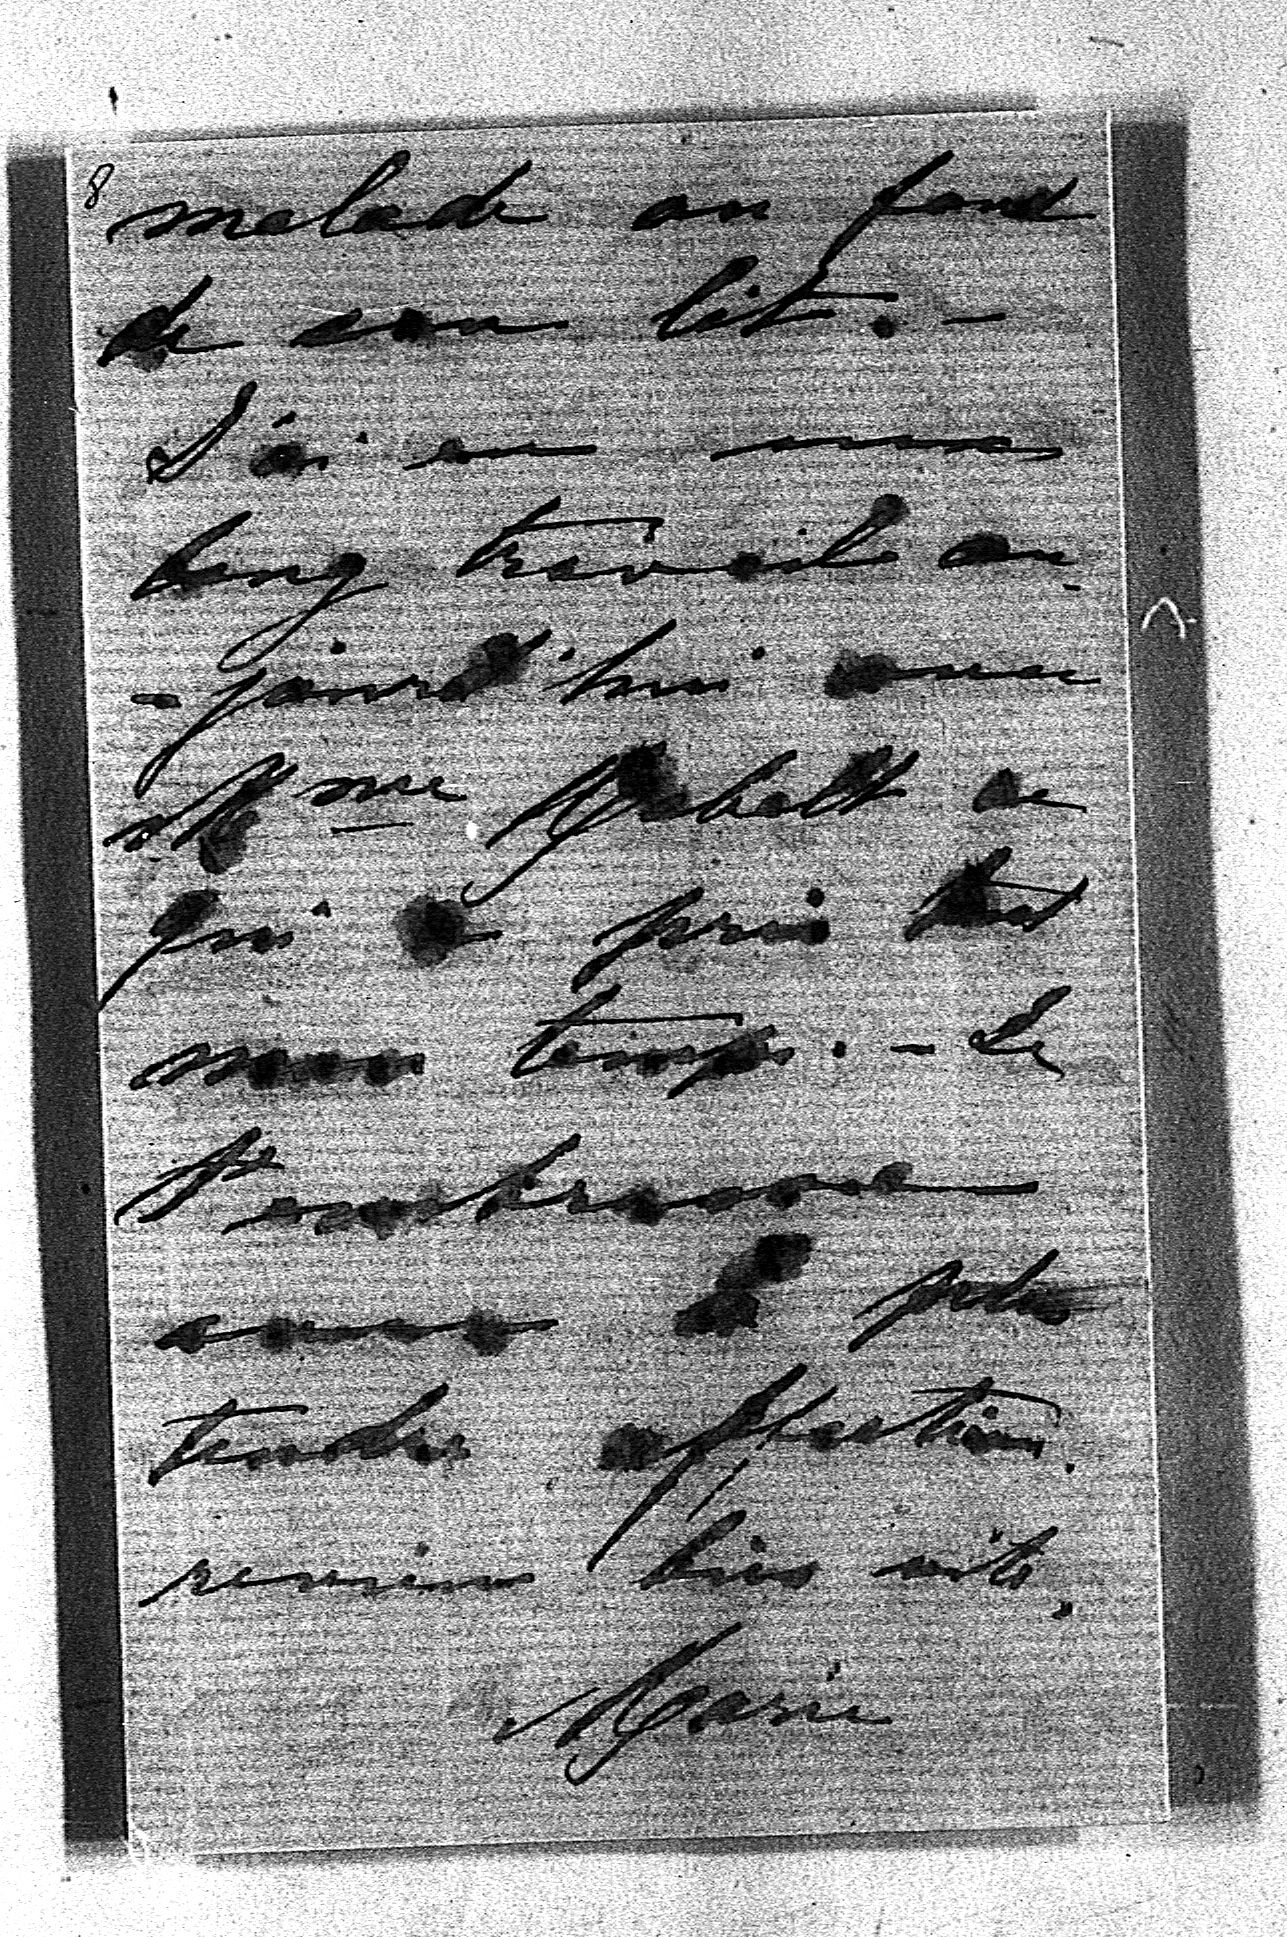 8
malade au fond
de son lit. –
J'ai eu un
long travail au-
-jourd'hui avec
Mme ce
qui a pris tout
mon temps. – Je
t'embrasse
avec la plus
tendre affection.
reviens bien vite.
Marie